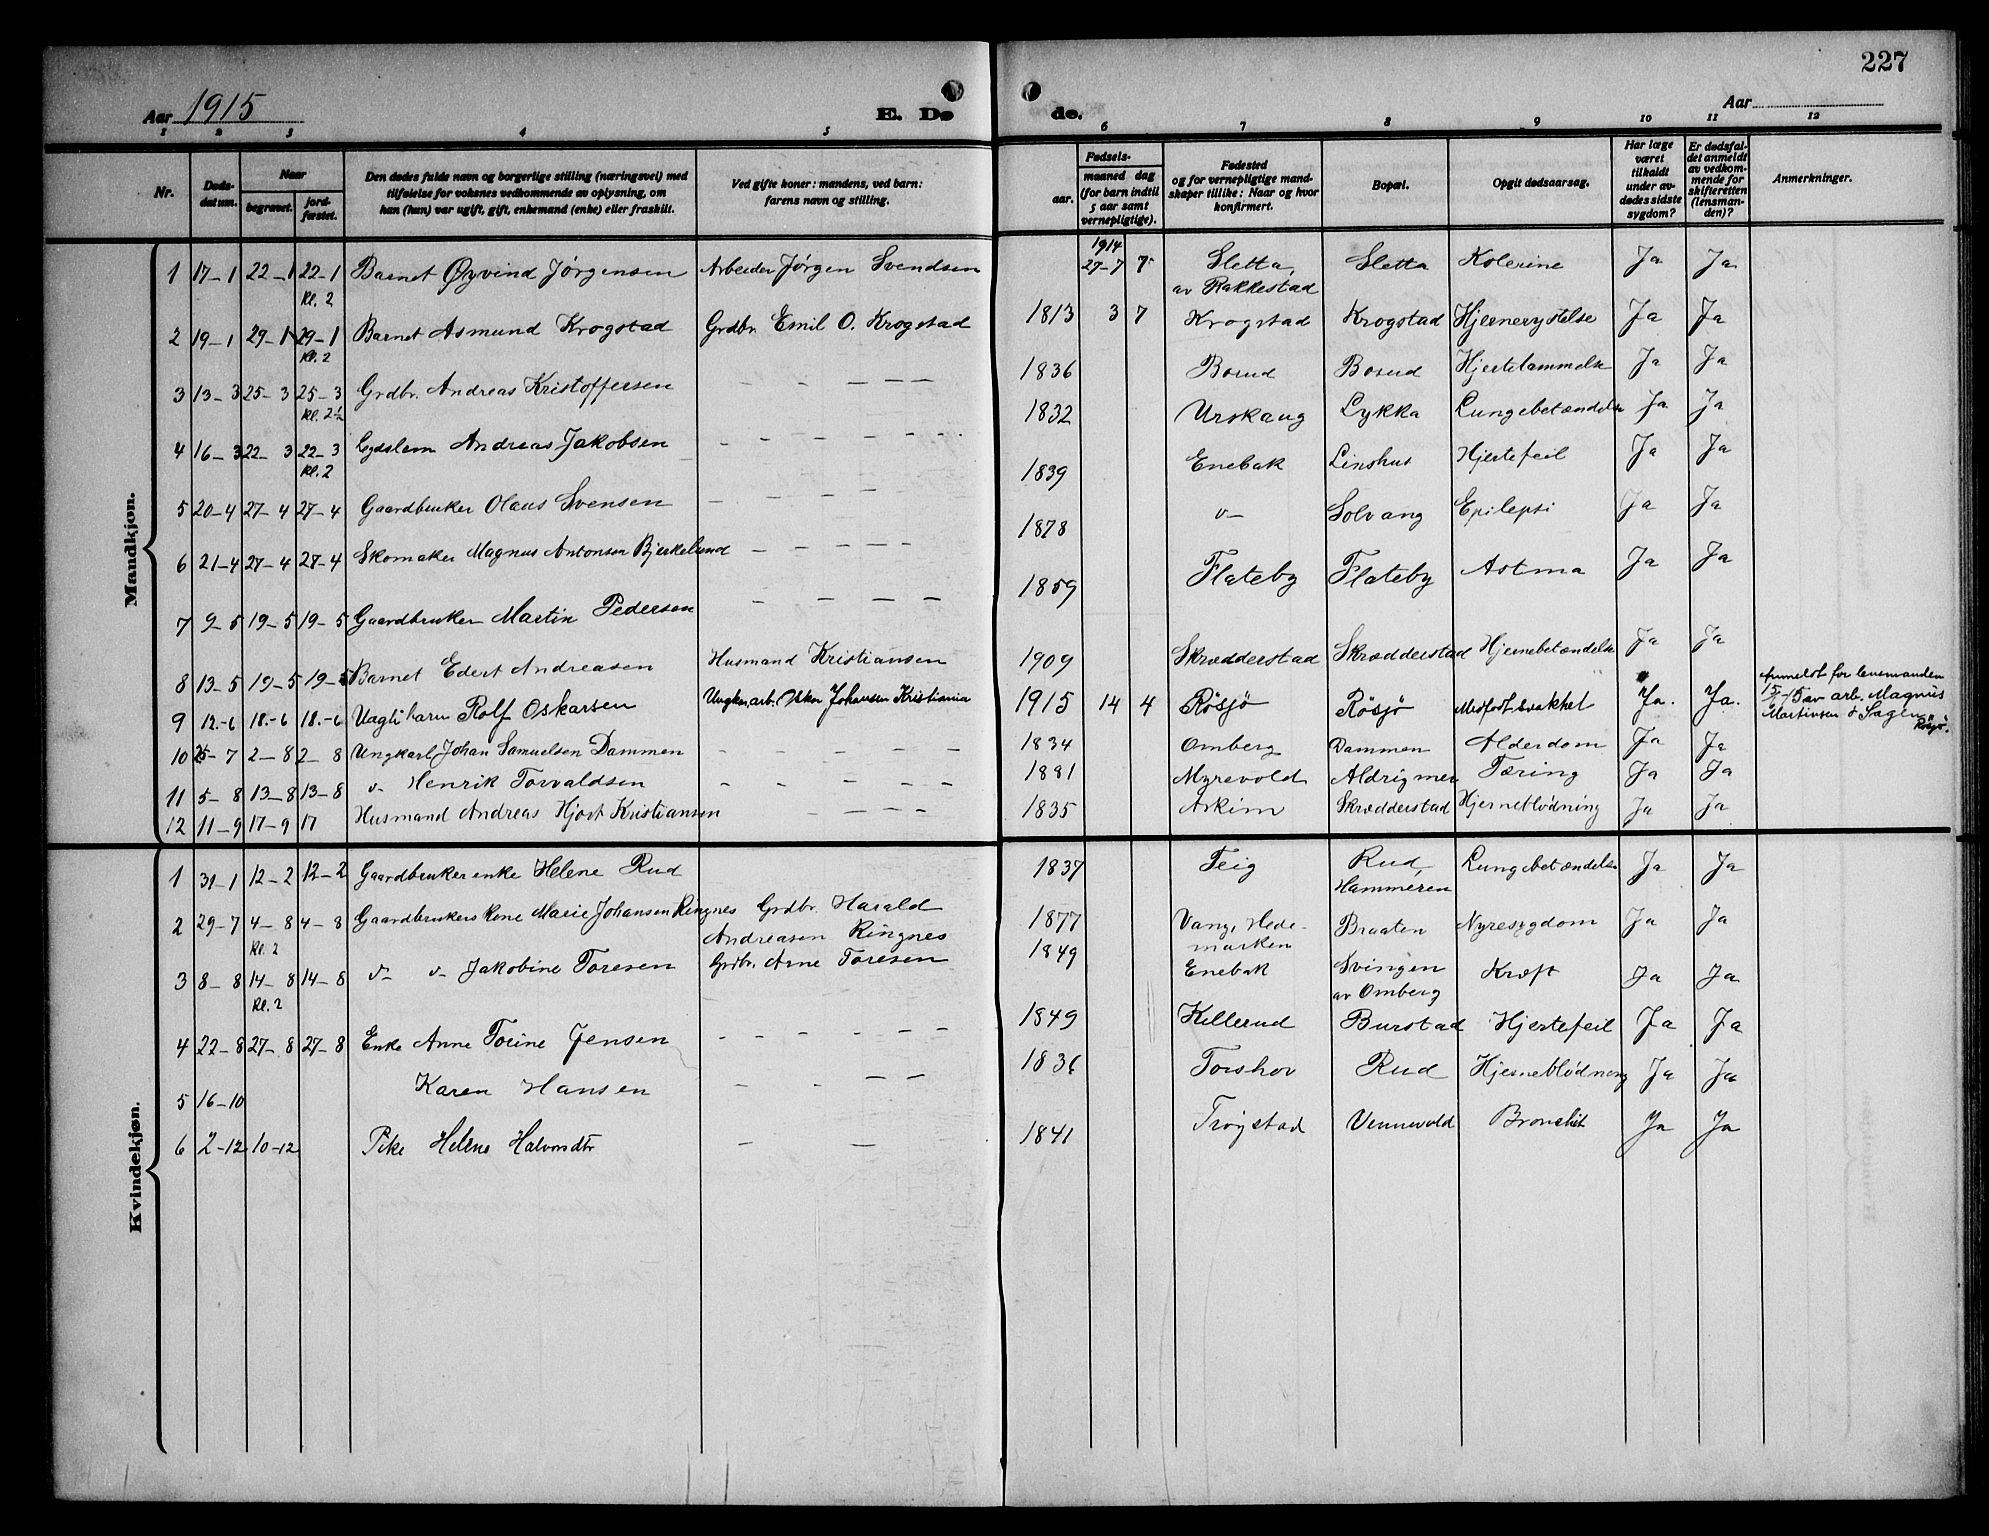 227
Aar 1915
E. Dø
de.
Aar
1 2 3 4 5 6 7 8 9 10 11 12
Nr.
Døds-
datum.
Naar
begravet.
jord-
fæstet.
Den dødes fulde navn og borgerlige stilling (næringsvei) med
tilføielse for voksnes vedkommende av oplysning, om
han (hun) var ugift, gift, enkemand (enke) eller fraskilt.
Ved gifte koner: mandens, ved barn:
farens navn og stilling.
Fødsels-
aar.
maaned dag
(for barn indtil
5 aar samt
vernepligtige).
Fødested
og for vernepligtige mand-
skaper tillike: Naar og hvor
konfirmert.
Bopæl.
Opgit dødsaarsag.
Har læge
været
tilkaldt
under av-
dødes sidste
sygdom?
Er dødsfal-
det anmeldt
av vedkom-
mende for
skifteretten
(lensman-
den)?
Anmerkninger.
Mandkjøn.
1 17-1 22-1 22-1 Kl. 2 Barnet Øyvind Jørgensen Arbeider Jørgen Svendsen 1914 27-7 7 Sletta, av Rakkestad Sletta Kolerine Ja Ja
2 19-1 29-1 29-1 Kl. 2 Barnet Asmund Krogstad Grdbr. Emil O. Krogstad 1813 3 7 Krogstad Krogstad Hjernerystelse Ja Ja
3 13-3 25-3 25-3 Kl. 2½ Grdbr. Andreas Kristoffersen - - - - - 1836 Borud Borud Hjertelammelse Ja Ja
4 16-3 22-3 22-3 Kl. 2 Lydslem Andreas Jakobsen - - - - - - 1832 Urskaug Lykka Lungebetændelse Ja Ja
5 20-4 27-4 27-4 Gaardbruker Olaus Svensen - - - - - 1839 Enebak Linshus Hjertefeil Ja Ja
6 21-4 27-4 27-4 Skomaker Magnus Antonsen Bjerkelund - - - - 1878 v- Solvang Epilepsi Ja Ja
7 9-5 19-5 19-5 Gaardbruker Martin Pedersen - - - - 1859 Flateby Flateby Astma Ja Ja
8 13-5 19-5 19-5 Barnet Edert Andreasen Husmand Kristiansen 1909 Skrædderstad Skrædderstad Hjernebetændelse Ja Ja
9 12.-6 18.-6 18.-6 Uægti barn Rolf Oskarsen Ungkar, arb. Johansen Kristiania 1915 14 4 Røsjø Røsjø Medfødt svakhet Ja. Ja. Anmeldt for lensmanden
15/6-15 av arb. Magnus
Martinsen Sagen
Røsjø.
10 25-7 2-8 2-8 Ungkarl Johan Samuelsen Dammen - - - - - 1834 Omberg Dammen Alderdom Ja Ja
11 5-8 13-8 13-8 v- Henrik Torvaldsen - - - - - 1881 Myrevold Aldrigmer Tæring Ja Ja
12 11-9 17-9 17 Husmand Andreas Hjort Kristiansen - - - - 1835 Askim Skrædderstad Hjerneblødning Ja Ja
Kvindekjøn.
1 31-1 12-2 12-2 Gaardbruker enke Helene Rud 1837 Teig Rud, Hammeren Lungebetændelse Ja Ja
2 29-7 4-8 Kl. 2 4-8 Gaardbrukers kone Marie Johansen Ringnes Grdbr. Harald Andreasen Ringnes 1877 Vang, Hedemarken Braaten Nyresygdom Ja Ja
3 8-8 14-8 Kl. 2 14-8 v- v- Jakobine Toresen Grdbr. Arne Toresen 1849 Enebak Svingen av Omberg Kræft Ja Ja
4 22-8 27-8 27-8 Enke Anne Torine Jensen - - - - - - 1849 Killerud Burstad Hjertefeil Ja Ja
5 16-10 Karen Hansen - - - - 1836 Torshov Rud Hjerneblødning Ja Ja
6 2-12 10-12 Pike Helene Halvorsdtr - - 1841 Trøgstad Vennevold Bronchit Ja Ja